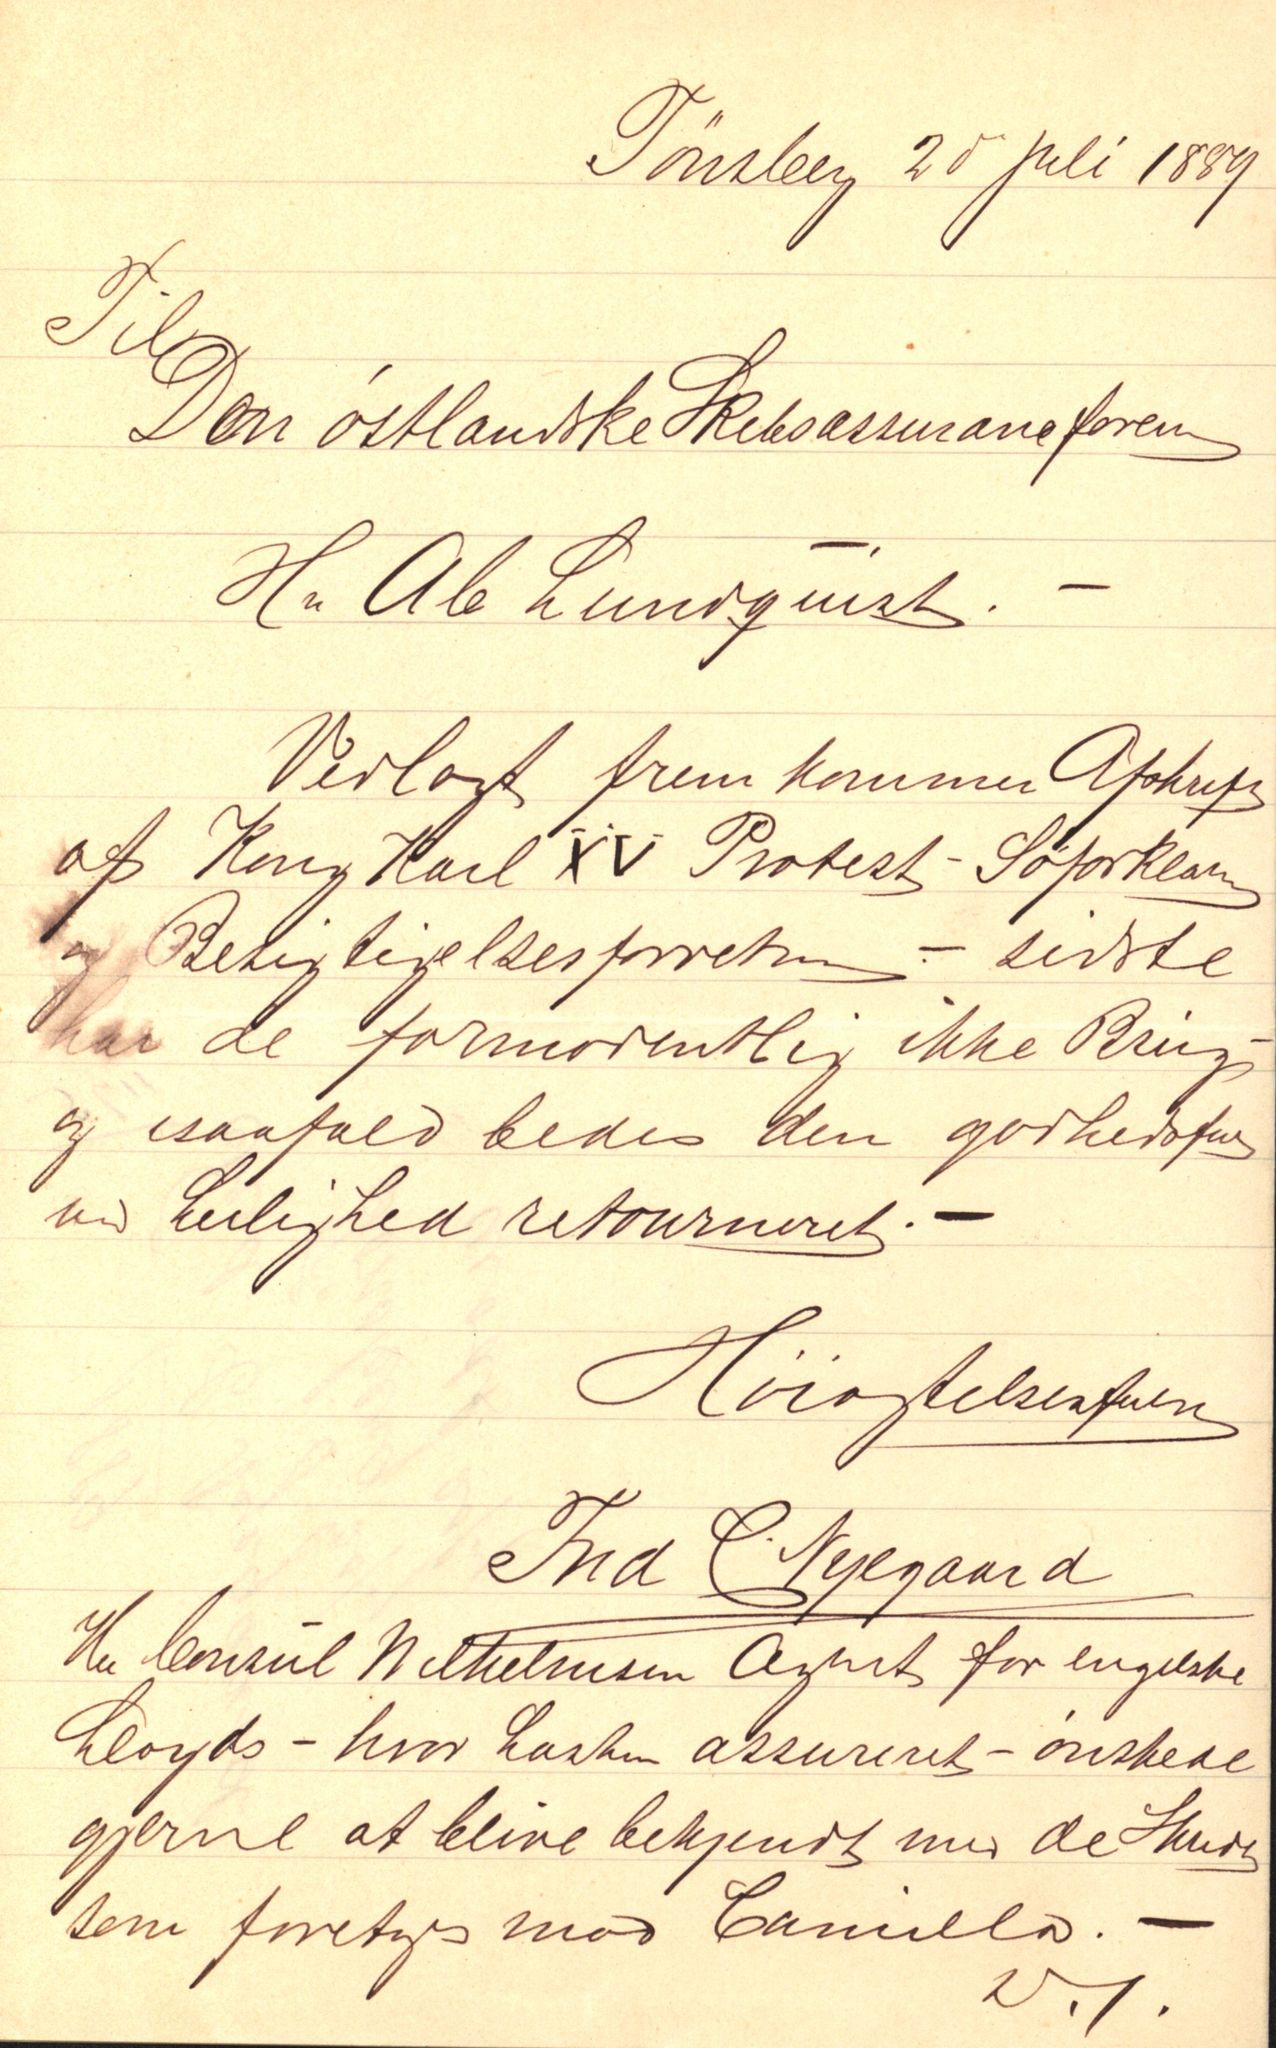 Tönsberg 20 juli 1889
Til
Den östlandske Skibsassuranceforen
Hr Ab Lundquist. —
Vedlagt fremkommer Afskrift
af Kong Karl XV Protest - Söforklaring
og Besigtigelsesforretn — sidste
har de formodentlig ikke Brug -
og isaafald bedes den godhedsfuldt
ved Leilighed retourneret. —
Höiagtelsesfuldt
Fred C. Nyegaard
Hr Consul Wilhelmsen Agent for engelske
Lloyds - hvor Lasten assureret - önskede
gjerne at blive bekjendt med de Skridt
som foretages mod Camilla. —
V. S.